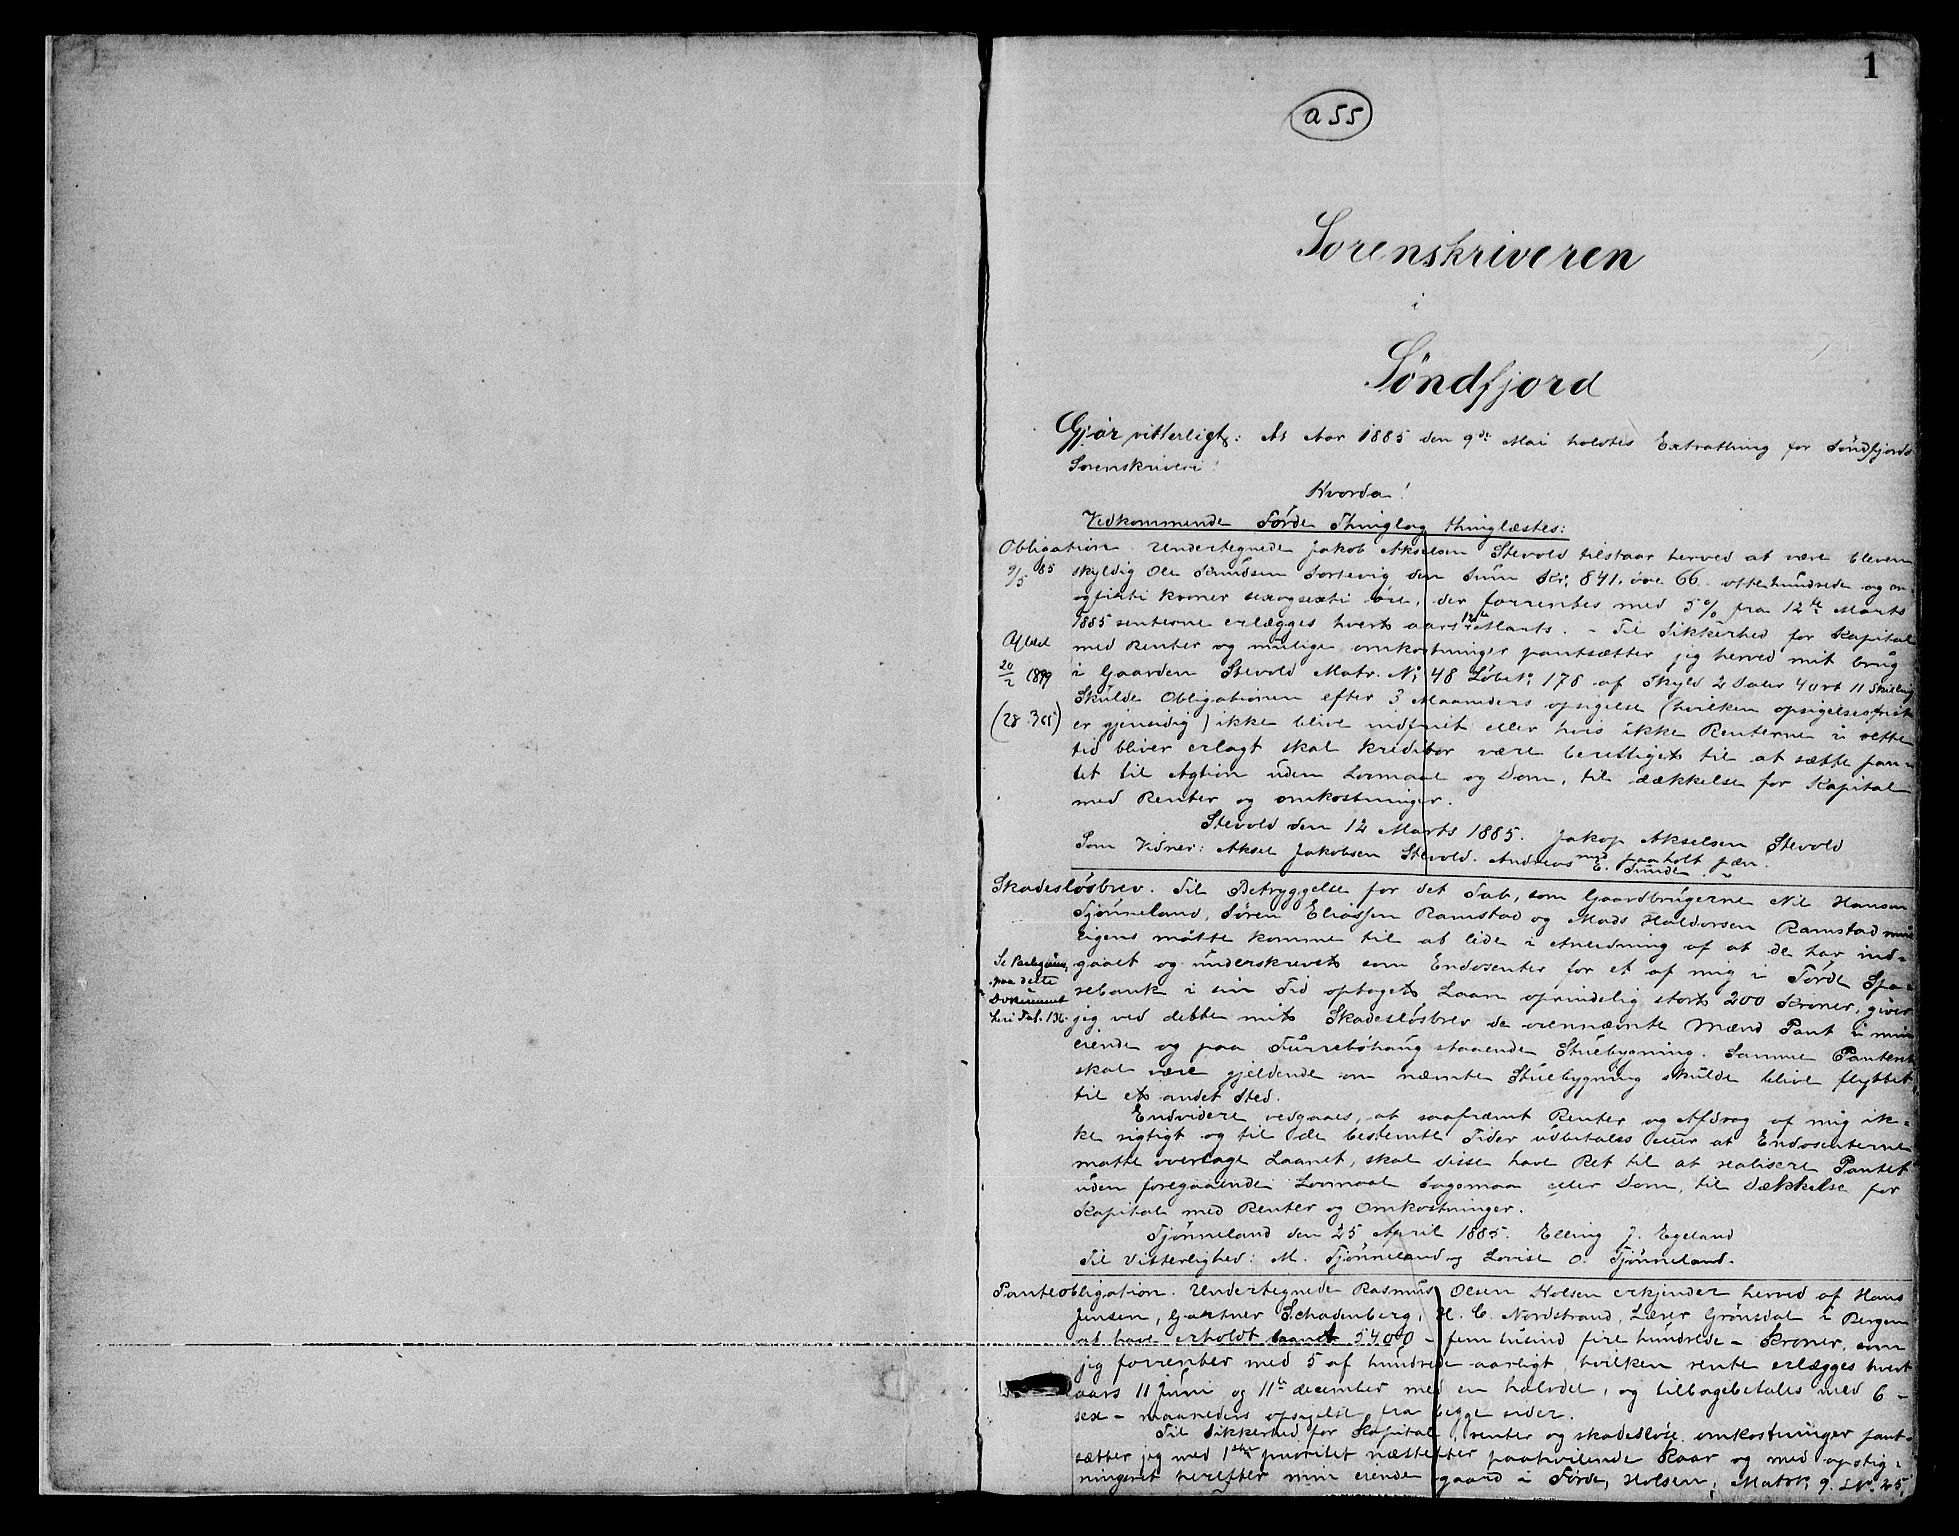 1
a 55
Sorenskriveren
i
Søndfjord
Gjør vitterligt: At Aar 1885 den 9de Mai holdtes Extrathing for Søndfjords
Sorenskriveri!
Hvorda!
Vedkommende Førde Thinglag thinglæstes:
Obligation. Undertegnede Jakob Akselsen Stevold tilstaar herved at være bleven
9/5 85 skyldig Ole Knudsen Sortevig den Sum Kr. 841. øre 66. ottehundrede og en
ogfirti kroner sexogsexti øre, der forrentes med 5 % fra 12te Marts
1885 renterne erlægges hvert aars 12te Marts. - Til Sikkerhed for Kapital
Aflæst med Renter og mulige omkostninger pantsætter jeg herved mit brug
20/2 1899 i Gaarden Stevold Matr. N. 48 Løbe N. 178 af Skyld 2 Daler 4 ort 11 Skilling
Skulde Obligationen efter 3 Maaneders opsigelse (hvilken opsigelsesfrist
(28.365) er gjensidig) ikke blive indfriet eller hvis ikke Renterne i rette
tid bliver erlagt skal kreditor være berettiget til at sætte pan-
tet til Agtion uden Lovmaal og Dom, til dækkelse for Kapital
med Renter og omkostninger.
Stevold den 12 Marts 1885. Jakop Akselsen Stevold
med paaholt pæn.
Som Vidner: Aksel Jakobsen Stevold. Andreas E. Sunde.
Skadesløsbrev. Til Betryggelse for det Tab, som Gaardbrugerne Nil Hansen
Tjønneland, Søren Eliassen Ramstad og Mads Haldorsen Ramstad mu-
ligens måtte komme til at lide i Anledning af at de har ind-
gaaet og underskrevet som Endosenter for et af mig i Førde Spa-
paa dette
rebank i sin Tid optaget Laan oprindelig stort 200 Kroner, giver
Dokument
heri Fol. 136. jeg ved dette mit Skadesløsbrev de ovennævnte Mænd Pant i min
eiende og paa Furrebøhaug staaende Stuebygning. Samme Panteret
skal være gjeldende om nævnte Stuebygning skulde blive flyttet
til et andet Sted.
Endvidere vedgaaes, at saafremt Renter og Afdrag af mig ik-
ke rigtigt og til de bestemte Tider udbetales eller at Endosenterne
måtte overtage Laanet, skal disse have Ret til at realisere Pantet
uden foregaaende Lovmaal Sagsmaal eller Dom, til Dækkelse for
Kapital med Renter og Omkostninger.
Tjønneland den 25 April 1885. Elling J. Egeland
Til Vitterlighed: M. Tjønneland og Lovise O. Tjønneland.
Panteobligation. Undertegnede Rasmus Olsen Holsen erkjender herved af Hans
Jensen, Gartner Schadenberg, H. C. Nordstrand, Lærer Grønsdal i Bergen
at have erholdt laant 5400 - fem tusind fire hundrede - Kroner, som
jeg forrenter med 5 af hundrede aarligt, hvilken rente erlægges hvert
aars 11 Juni og 11te december med en halvdel, og tilbagebetales med 6 -
sex - maaneders opsigelse fra begge sider.
Til Sikkerhed for Kapital, renter og skadesløse omkostninger pant-
sætter jeg med 1ste prioritet næstefter paahvilende Kaar og med opstig-
ningsret herefter min eiende gaard i Førde, Holsen, Matr. 9. LN. 25,